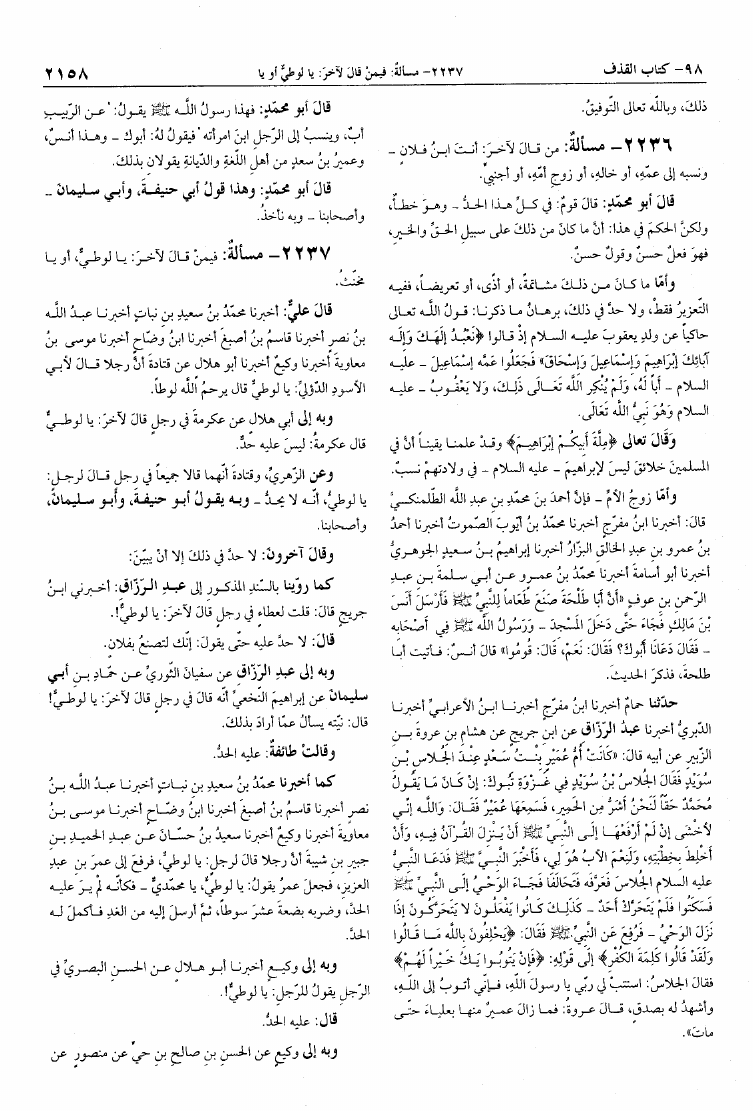 ٩٨- كتاب القذف
٢٢٣٧- مسألة: فيمنْ قالَ لآخرَ: يا لوطيُّ أو يا
٢١٥٨
ذلكَ، وباللّه تعالى التّوفيقُ.
٢٢٣٦- مسألةٌ: من قالَ لآخرَ: أنتَ ابنُ فلانٍ -
ونسبه إلى عمّهِ، أو خالهِ، أو زوجِ أمّهِ، أو أجنبيّ.
قالَ أبو محمّدٍ: قالَ قومٌ: في كلِّ هذا الحدُّ - وهوَ خطأٌ،
ولكنَّ الحكمَ في هذا: أنَّ ما كانَ من ذلكَ على سبيلِ الحقِّ والخيرِ،
فهوَ فعلٌ حسنٌ وقولٌ حسنٌ.
وأمّا ما كانَ منْ ذلكَ مشاتمةً، أو أذًى، أو تعريضاً، ففيه
التّعزيرُ فقطْ، ولا حدَّ في ذلكَ، برهانُ ما ذكرنا: قولُ اللّه تعالى
حاكياً عن ولدِ يعقوبَ عليه السلام إذْ قالوا ﴿نَعْبُدُ إِلَهَكَ وَإِلَه
آبَائِكَ إِبْرَاهِيمَ وَإِسْمَاعِيلَ وَإِسْحَاقَ﴾ فَجَعَلُوا عَمَّه إِسْمَاعِيلَ - عليه
السلام - أَباً لَهُ، وَلَمْ يُنْكِرِ اللَّه تَعَـالَى ذَلِكَ، وَلا يَعْقُوبُ - عليه
السلام وَهُوَ نَبِيُّ اللَّه تَعَالَى.
وَقَالَ تعالى ﴿مِلَّةَ أَبِيكُمْ إِبْرَاهِيمَ﴾ وقدْ علمنا يقيناً أنَّ في
المسلمينَ خلائقَ ليسَ لإبراهيمَ - عليه السلام - في ولادتهمْ نسبٌ.
وأمّا زوجُ الأمِّ - فإنَّ أحمدَ بنَ محمّدِ بنِ عبدِ اللّه الطّلمنكيَّ
قالَ: أخبرنا ابنُ مفرّجٍ أخبرنا محمّدُ بنُ أيّوبَ الصّموتُ أخبرنا أحمدُ
بنُ عمرِو بنِ عبدِ الخالقِ البزّارُ أخبرنا إبراهيمُ بنُ سعيدٍ الجوهريُّ
أخبرنا أبو أسامةَ أخبرنا محمّدُ بنُ عمرٍو عن أبي سلمةَ بنِ عبدِ
الرّحمنِ بنِ عوفٍ «أَنَّ أَبَا طَلْحَةَ صَنَعَ طَعَاماً لِلنَّبِيِّ ﷺ فَأَرْسَلَ أَنَسَ
بْنَ مَالِكٍ فَجَاءَ حَتَّى دَخَلَ الْمَسْجِدَ - وَرَسُولُ اللَّه ﷺ فِي أَصْحَابِه
- فَقَالَ دَعَانَا أَبُوكَ؟ فَقَالَ: نَعَمْ، قَالَ: قُومُوا» قالَ أنسٌ: فأتيت أبا
طلحةَ، فذكرَ الحديثَ.
حدّثنا حمامٌ أخبرنا ابنُ مفرّجٍ أخبرنا ابنُ الأعرابيِّ أخبرنا
الدّبريُّ أخبرنا عبدُ الرّزّاقِ عن ابنِ جريجٍ عن هشامِ بنِ عروةَ بنِ
الزّبيرِ عن أبيه قالَ: «كَانَتْ أُمُّ عُمَيْرِ بِنْتُ سَعْدٍ عِنْدَ الْجُلَاسِ بْنِ
سُوَيْدٍ فَقَالَ الْجُلَاسُ بْنُ سُوَيْدٍ فِي غَزْوَةِ تَبُوكَ: إنْ كَانَ مَا يَقُولُ
مُحَمَّدٌ حَقّاً لَنَحْنُ أَشَرُّ مِنِ الْحَمِيرِ، فَسَمِعَهَا عُمَيْرٌ فَقَالَ: وَاللَّه إنِّي
لأَخْشَى إنْ لَمْ أَرْفَعْهَا إلَى النَّبِيِّ ﷺ أَنْ يَنْزِلَ الْقُرْآنُ فِيهِ، وَأَنْ
أُخْلِطَ بِخَطِيَّتِهِ، وَلَنِعْمَ الأَبُ هُوَ لِي، فَأَخْبَرَ النَّبِيَّ ﷺ فَدَعَا النَّبِيُّ
عليه السلام الْجُلَاسَ فَعَرَّفَه فَتَحَالَفَا فَجَاءَ الْوَحْيُ إلَى النَّبِيِّ ﷺ
فَسَكَتُوا فَلَمْ يَتَحَرَّكْ أَحَدٌ - كَذَلِكَ كَانُوا يَفْعَلُونَ لا يَتَحَرَّكُونَ إذَا
نَزَلَ الْوَحْيُ - فَرُفِعَ عَنِ النَّبِيِّ ﷺ فَقَالَ: ﴿يَحْلِفُونَ بِاللَّه مَا قَالُوا
وَلَقَدْ قَالُوا كَلِمَةَ الْكُفْرِ﴾ إلَى قَوْلِهِ: ﴿فَإِنْ يَتُوبُوا يَكُ خَيْراً لَهُمْ﴾
فقالَ الجلاسُ: استتبْ لي ربّي يا رسولَ اللّه، فإنّي أتوبُ إلى اللّه،
وأشهدُ له بصدقٍ، قالَ عروةُ: فما زالَ عميرٌ منها بعلياءَ حتّى
ماتَ».
قالَ أبو محمّدٍ: فهذا رسولُ اللّه ﷺ يقولُ: عن الرّبيبِ
أبٌ، وينسبُ إلى الرّجلِ ابنَ امرأته فيقولُ لهُ: أبوك - وهذا أنسٌ،
وعميرُ بنُ سعدٍ من أهلِ اللّغةِ والدّيانةِ يقولان بذلكَ.
قالَ أبو محمّدٍ: وهذا قولُ أبي حنيفةَ، وأبي سليمانَ -
وأصحابنا - وبه نأخذُ.
٢٢٣٧- مسألةٌ: فيمنْ قالَ لآخرَ: يا لوطيُّ، أو يا
مخنّثُ.
قالَ عليٌّ: أخبرنا محمّدُ بنُ سعيدِ بنِ نباتٍ أخبرنا عبدُ اللّه
بنُ نصرٍ أخبرنا قاسمُ بنُ أصبغَ أخبرنا ابنُ وضّاحٍ أخبرنا موسى بنُ
معاويةَ أخبرنا وكيعٌ أخبرنا أبو هلالٍ عن قتادةَ أنَّ رجلا قالَ لأبي
الأسودِ الدّؤليِّ: يا لوطيُّ قالَ يرحمُ اللّه لوطاً.
وبه إلى أبي هلالٍ عن عكرمةَ في رجلٍ قالَ لآخرَ: يا لوطيُّ
قالَ عكرمةُ: ليسَ عليه حدٌّ.
وعن الزّهريِّ، وقتادةَ أنّهما قالا جميعاً في رجلٍ قالَ لرجلٍ:
يا لوطيُّ، أنّه لا يحدُّ - وبه يقولُ أبو حنيفةَ، وأبو سليمانَ،
وأصحابنا.
وقالَ آخرونَ: لا حدَّ في ذلكَ إلا أنْ يبيّنَ:
كما روّينا بالسّندِ المذكورِ إلى عبدِ الرّزّاقِ: أخبرني ابنُ
جريجٍ قالَ: قلت لعطاءٍ في رجلٍ قالَ لآخرَ: يا لوطيُّ!.
قالَ: لا حدَّ عليه حتّى يقولَ: إنّك لتصنعُ بفلانٍ.
وبه إلى عبدِ الرّزّاقِ عن سفيانَ الثّوريِّ عن حمّادِ بنِ أبي
سليمانَ عن إبراهيمَ النّخعيِّ أنّه قالَ في رجلٍ قالَ لآخرَ: يا لوطيُّ!
قالَ: نيّته يسألُ عمّا أرادَ بذلكَ.
وقالتْ طائفةٌ: عليه الحدُّ.
كما أخبرنا محمّدُ بنُ سعيدِ بنِ نباتٍ أخبرنا عبدُ اللّه بنُ
نصرٍ أخبرنا قاسمُ بنُ أصبغَ أخبرنا ابنُ وضّاحٍ أخبرنا موسى بنُ
معاويةَ أخبرنا وكيعٌ أخبرنا سعيدُ بنُ حسّانَ عن عبدِ الحميدِ بنِ
جبيرِ بنِ شيبةَ أنَّ رجلا قالَ لرجلٍ: يا لوطيُّ، فرفعَ إلى عمرَ بنِ عبدِ
العزيزِ، فجعلَ عمرُ يقولُ: يا لوطيُّ، يا محمّديُّ - فكأنّه لمْ يرَ عليه
الحدَّ، وضربه بضعةَ عشرَ سوطاً، ثمَّ أرسلَ إليه من الغدِ فأكملَ له
الحدَّ.
وبه إلى وكيعٍ أخبرنا أبو هلالٍ عن الحسنِ البصريِّ في
الرّجلِ يقولُ للرّجلِ: يا لوطيُّ!.
قالَ: عليه الحدُّ.
وبه إلى وكيعٍ عن الحسنِ بنِ صالحِ بنِ حيٍّ عن منصورٍ عن